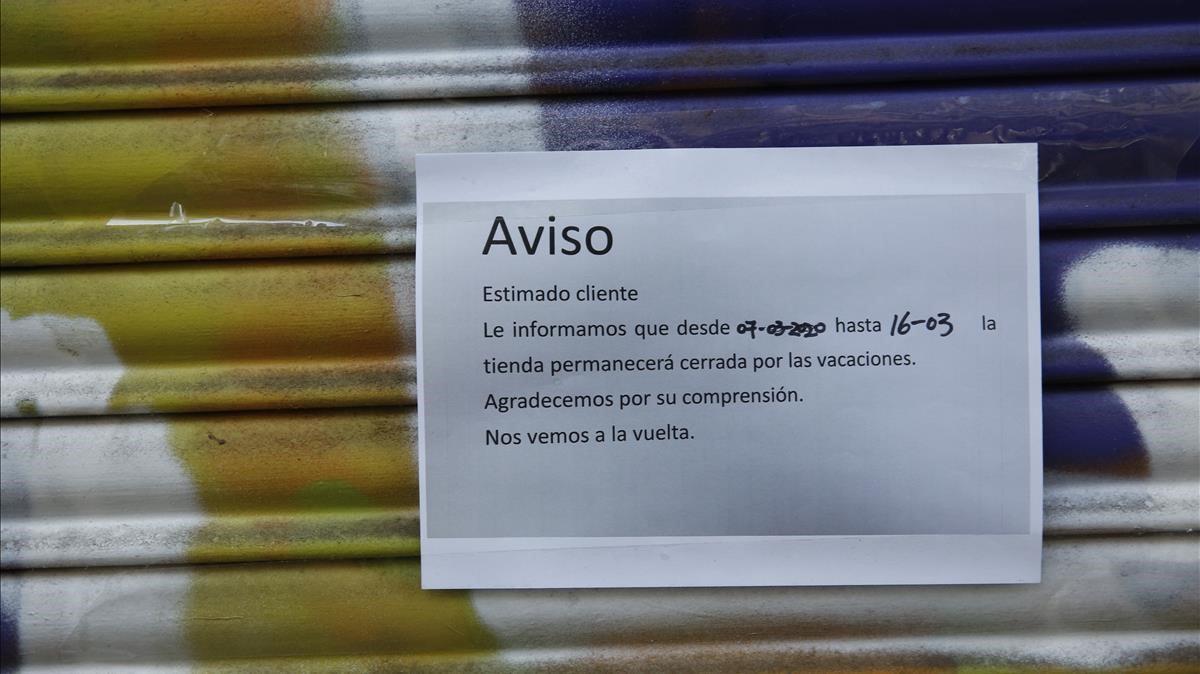 Aviso
Estimado cliente
Le informamos que desde 07-03-2020 hasta 16-03 la
tienda permanecerá cerrada por las vacaciones.
Agradecemos por su comprensión.
Nos vemos a la vuelta.